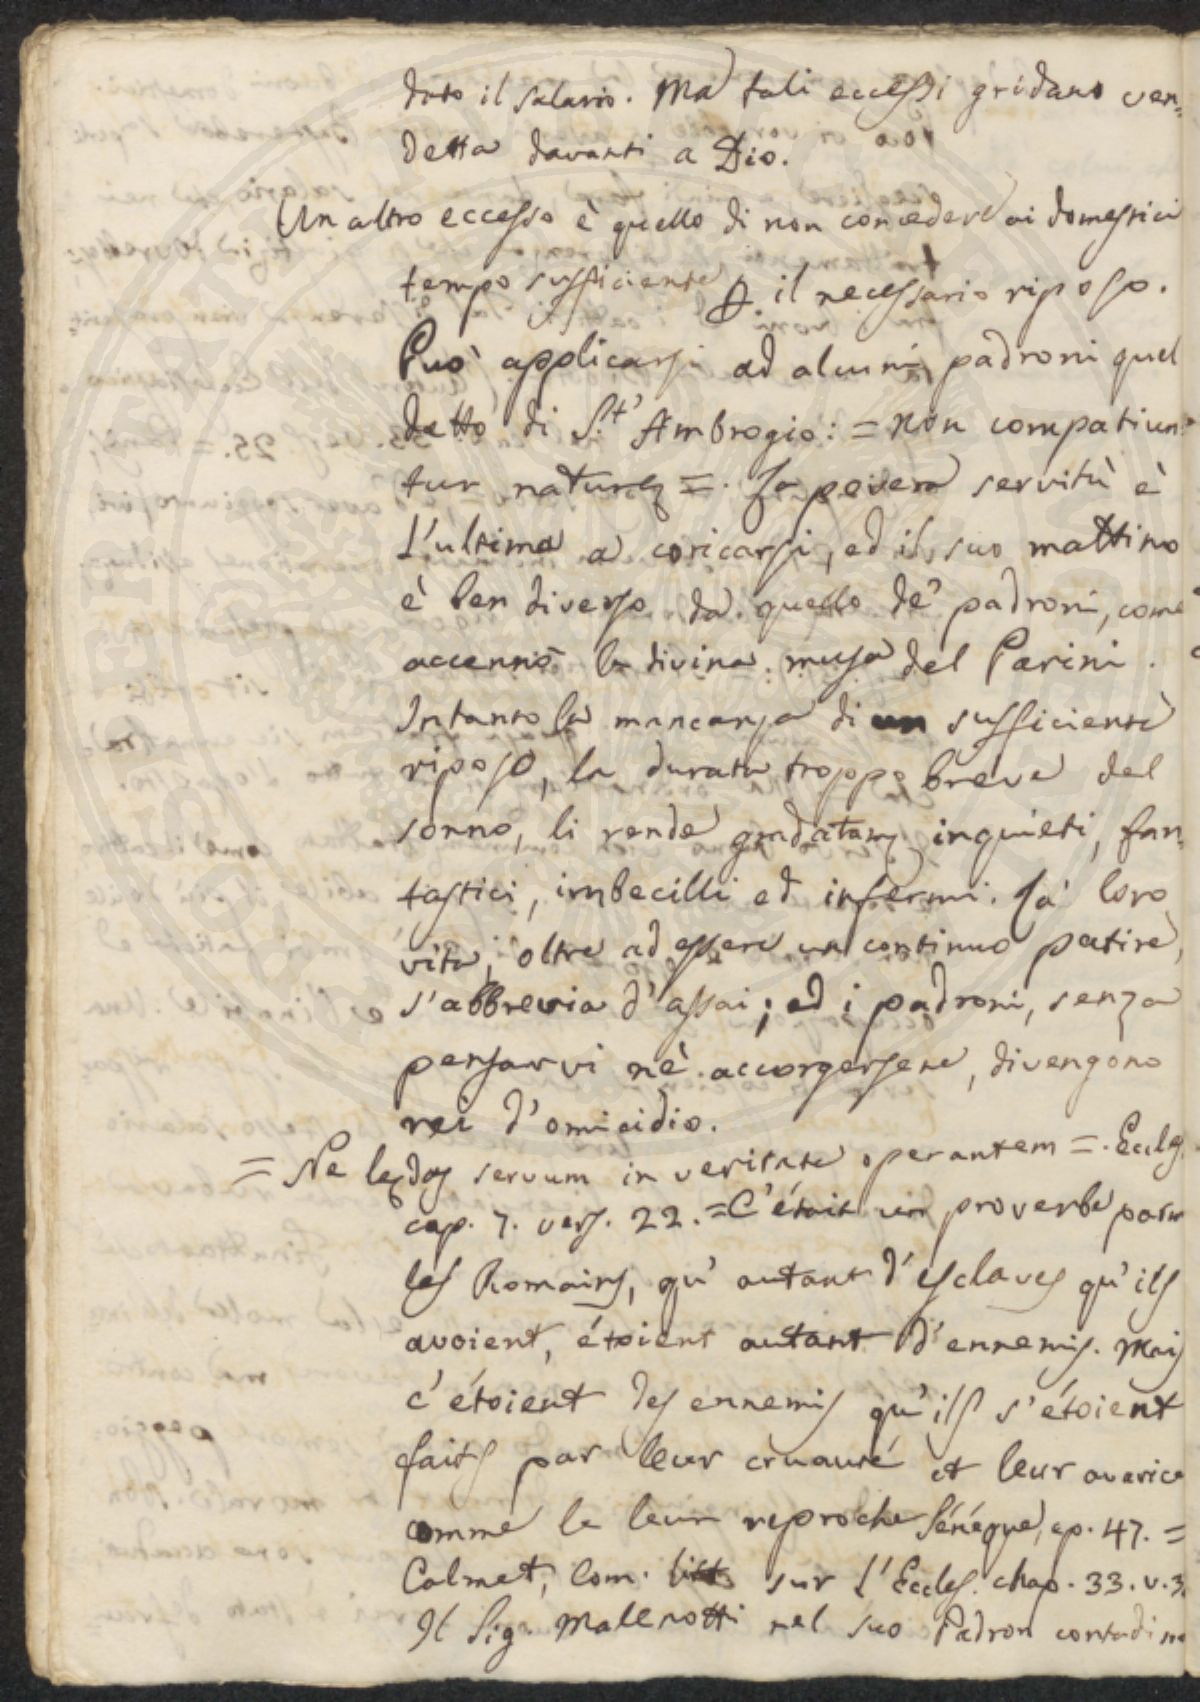 dato il salario. Ma tali eccessi gridano ven=
detta davanti a Dio.
Un altro eccesso è quello di non concedere ai domestici
tempo sufficiente p. il necessario riposo.
Può applicarsi ad alcuni padroni quel
detto di S.t' Ambrogio: = Non compatiun=
tur naturæ =. La povera servitù è
l'ultima a coricarsi, ed il suo mattino
è ben diverso da quello de' padroni, come
accennò la divina musa del Parini.
Intanto la mancanza di un sufficiente
riposo, la durata troppo breve del
sonno, li rende gradatam. inquieti, fan=
tastici, imbecilli ed infermi. La loro
vita, oltre ad essere un continuo patire,
s'abbrevia d'assai; ed i padroni, senza
pensarvi nè accorgersene, divengono
rei d'omicidio.
= Ne lædas servum in veritate operantem =. Eccles.
cap. 7. vers. 22. = C'étoit un proverbe parmi
les Romains, qu'autant d'esclaves qu'ils
avoient, étoient autant d'ennemis. Mais
c'étoient des ennemis qu'ils s'étoient
faits par leur cruauté et leur avarice
comme le leur reproche Sénéque, ep. 47. =
Calmet, Com. sur l'Eccles. chap. 33. v. 3
Il Sig. Malenotti nel suo Padron contadino